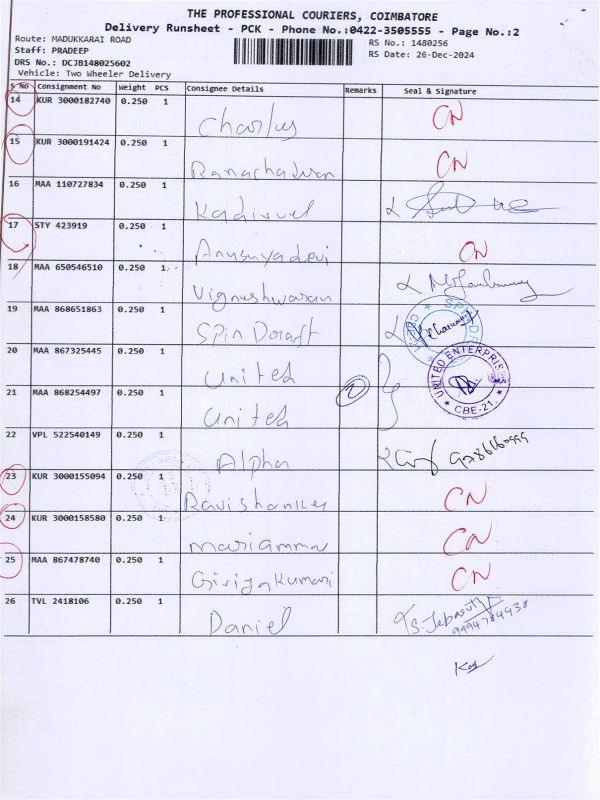 THE PROFESSIONAL COURIERS, COIMBATORE
Delivery Runsheet - PCK - Phone No.:0422-3505555 - Page No.:2
Route: MADUKKARAI ROAD
RS No.: 1480256
Staff: PRADEEP
RS Date: 26-Dec-2024
DRS No.: DCJB148025602
Vehicle: Two Wheeler Delivery
S No Consignment No Weight PCS Consignee Details Remarks Seal & Signature
14 KUR 3000182740 0.250 1
Charlus CN
15 KUR 3000191424 0.250 1
CN
16 MAA 110727834 0.250 1
Kadirvel
17 STY 423919 0.250 1
Anusuyadevi CN
18 MAA 650546510 0.250 1
Vigneshwaran
19 MAA 868651863 0.250 1
Spin Draft
20 MAA 867325445 0.250 1
United
UNITED ENTERPRISES
CBE-21.
21 MAA 868254497 0.250 1
2
United
22 VPL 522540149 0.250 1
Alpha
23 KUR 3000155094 0.250 1
Ravishanker CN
24 KUR 3000158580 0.250 1
Mariamma CN
25 MAA 867478740 0.250 1
Girijakumari CN
26 TVL 2418106 0.250 1
Daniel